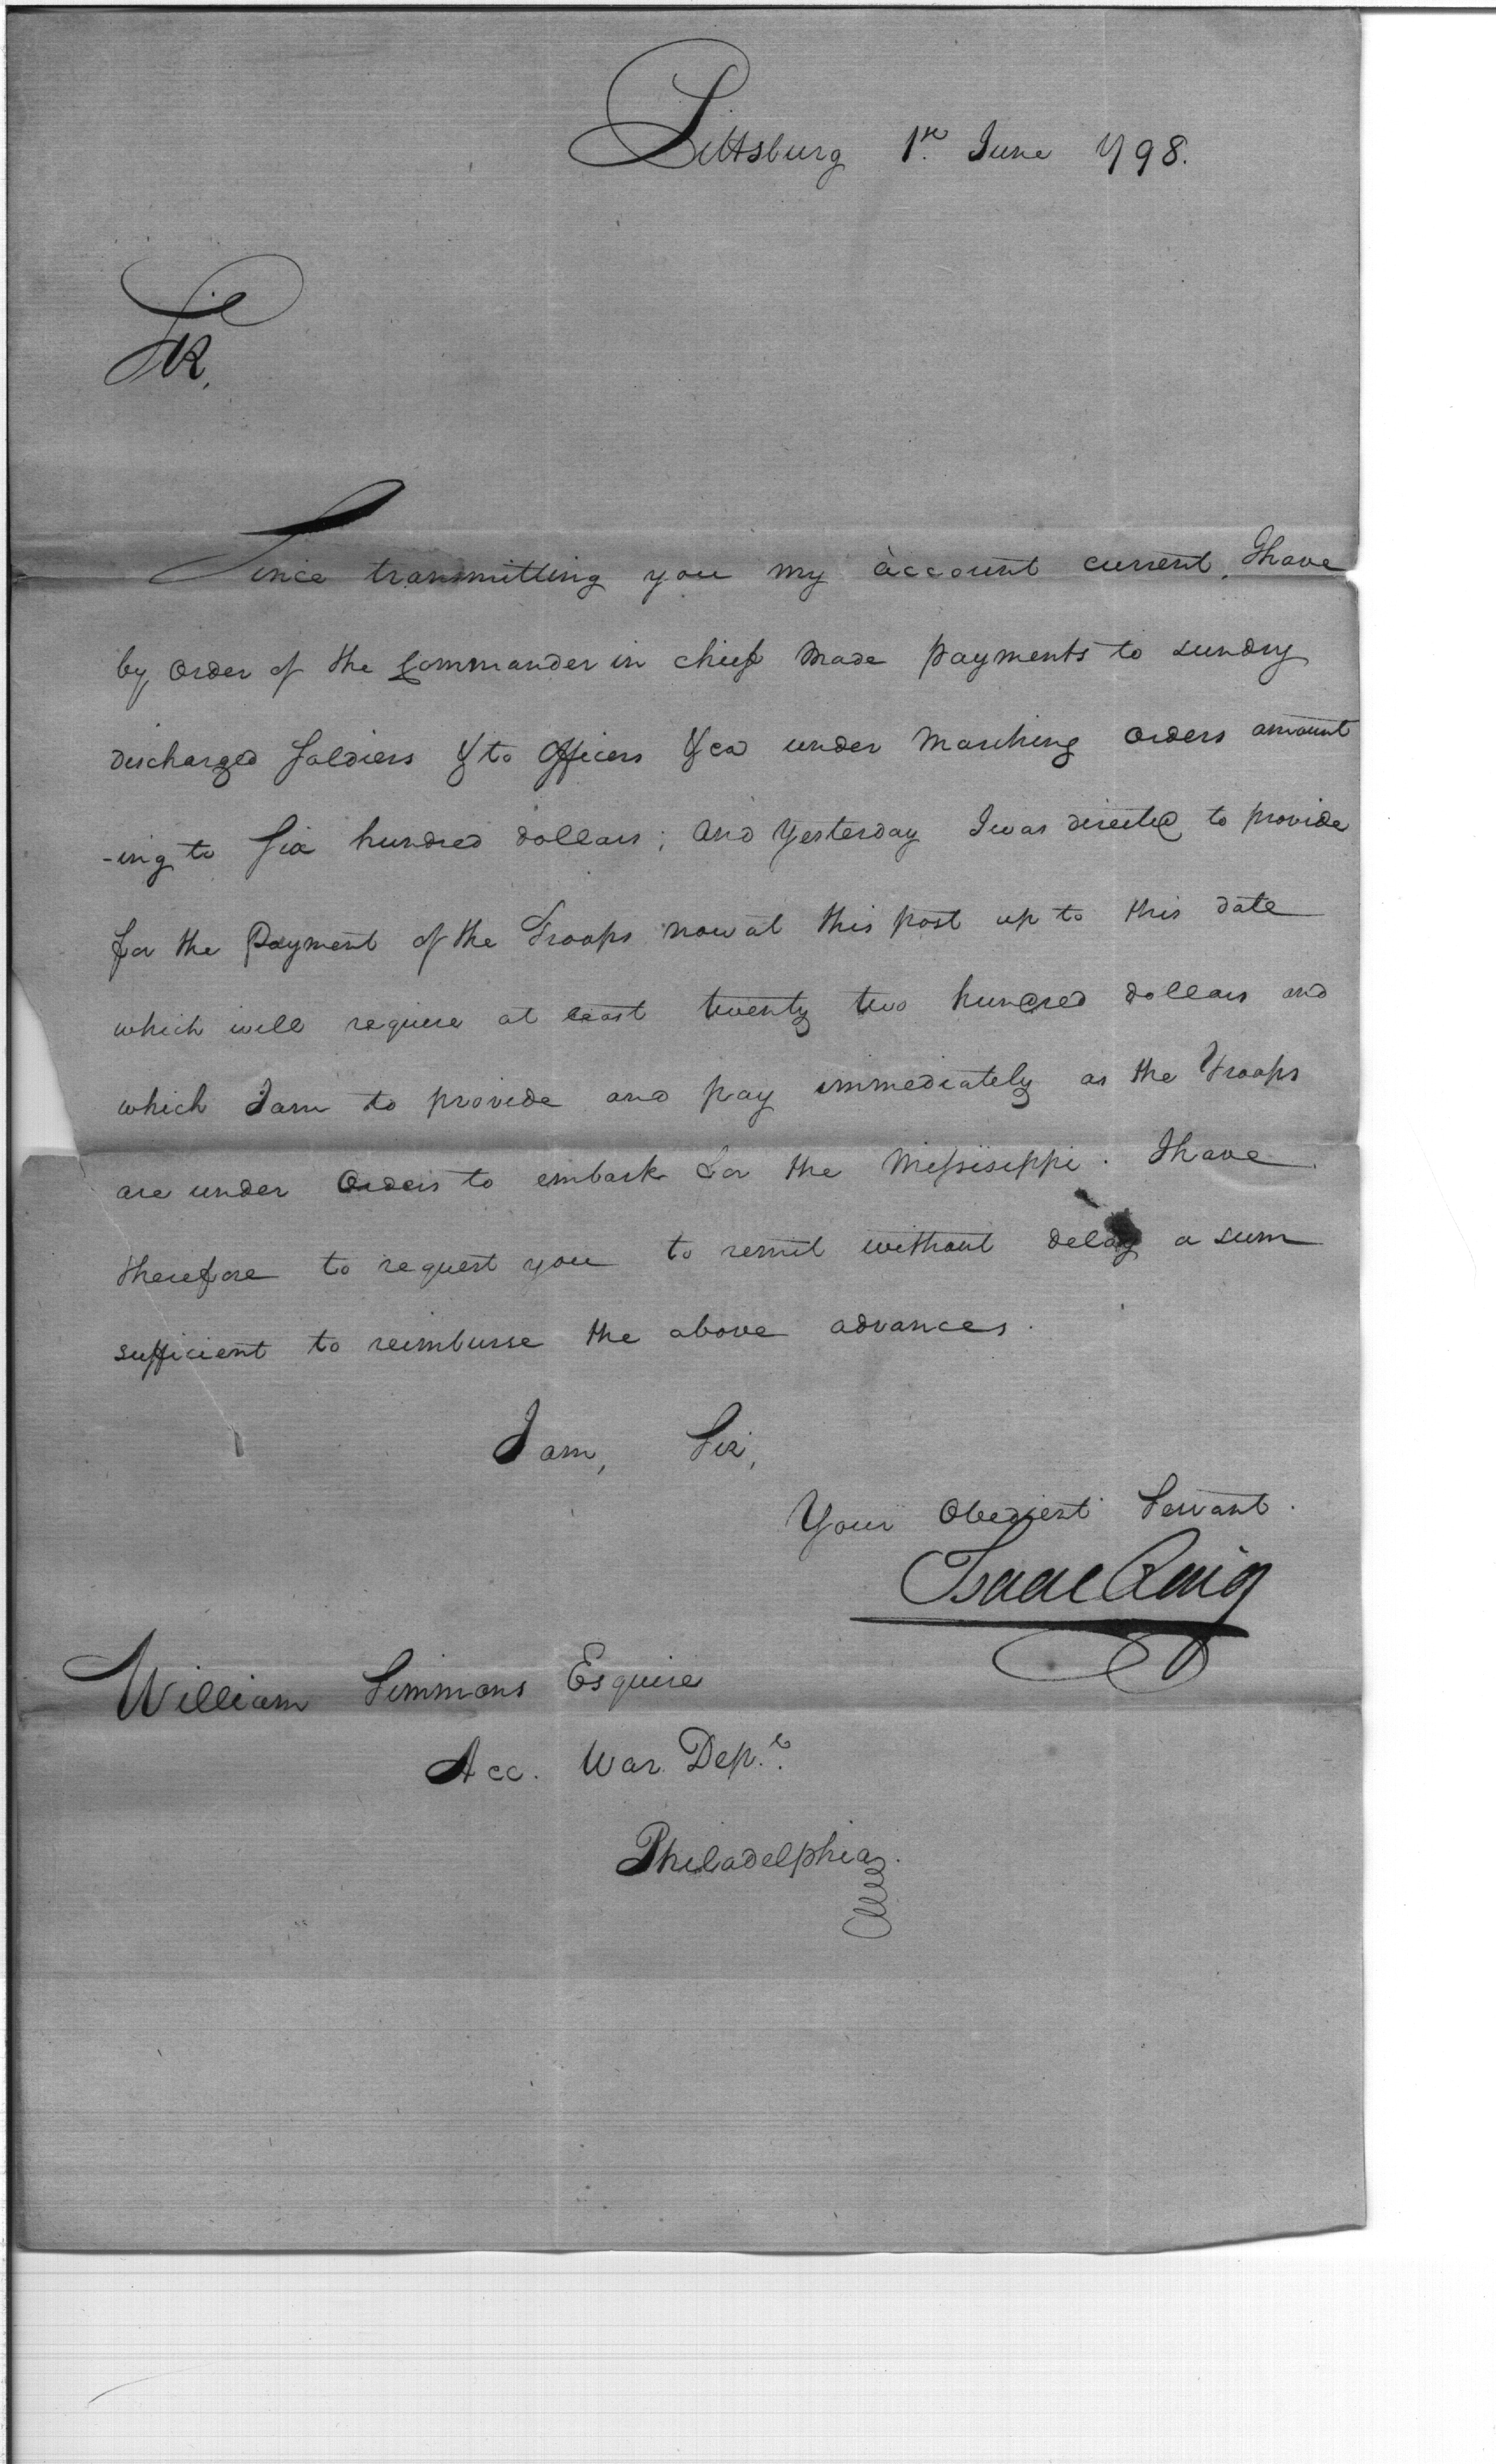 Pittsburg 1st June 1798.
Sir,
Since transmitting you my account current, I have
by Order of the Commander in chief made payments to sundry
discharged Soldiers & to Officers &ca under marching orders amount
-ing to Six hundred dollars; and Yesterday I was directed to provide
for the Payment of the Troops now at this post up to this date
which will require at least twenty two hundred dollars and
which I am to provide and pay immediately as the Troops
are under Orders to embark for the Missisippi. I have
therefore to request you to remit without delay a sum
sufficient to reimburse the above advances.
I am, Sir,
Your Obedient Servant.
Isaac Craig
William Simmons Esquire
Acc. War Dept.
Philadelphia.